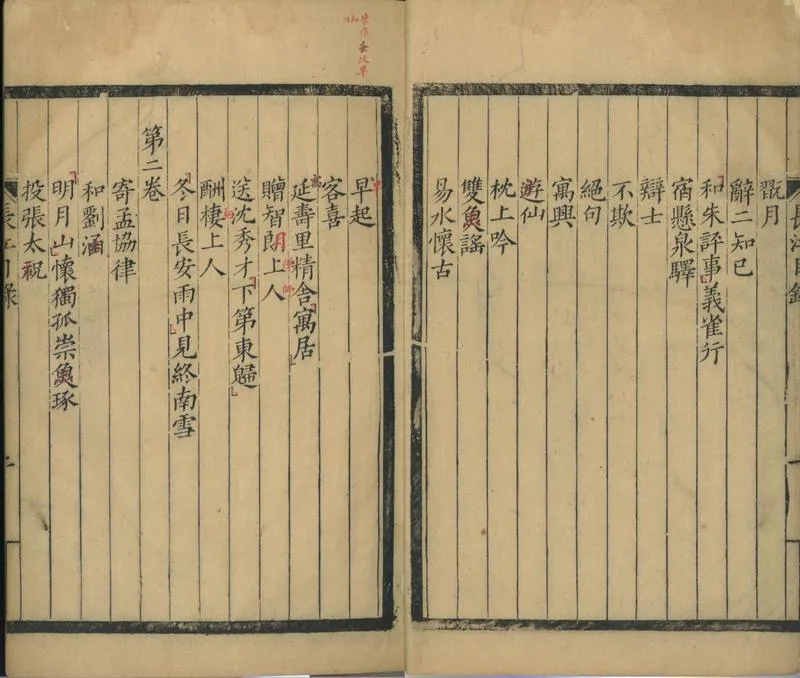 長江目錄
翫月
辭二知己
和朱評事義雀行
宿懸泉驛
辯士
不欺
絕句
寓興
遊仙
枕上吟
雙魚謠
易水懷古
早起
客喜
延壽里精舍寓居
贈智朗上人
禪師
送沈秀才下第東歸
酬棲上人
冬日長安雨中見終南雪
第二卷
寄孟協律
和劉涵
明月山懷獨孤崇魚琢
投張太祝
長江目錄